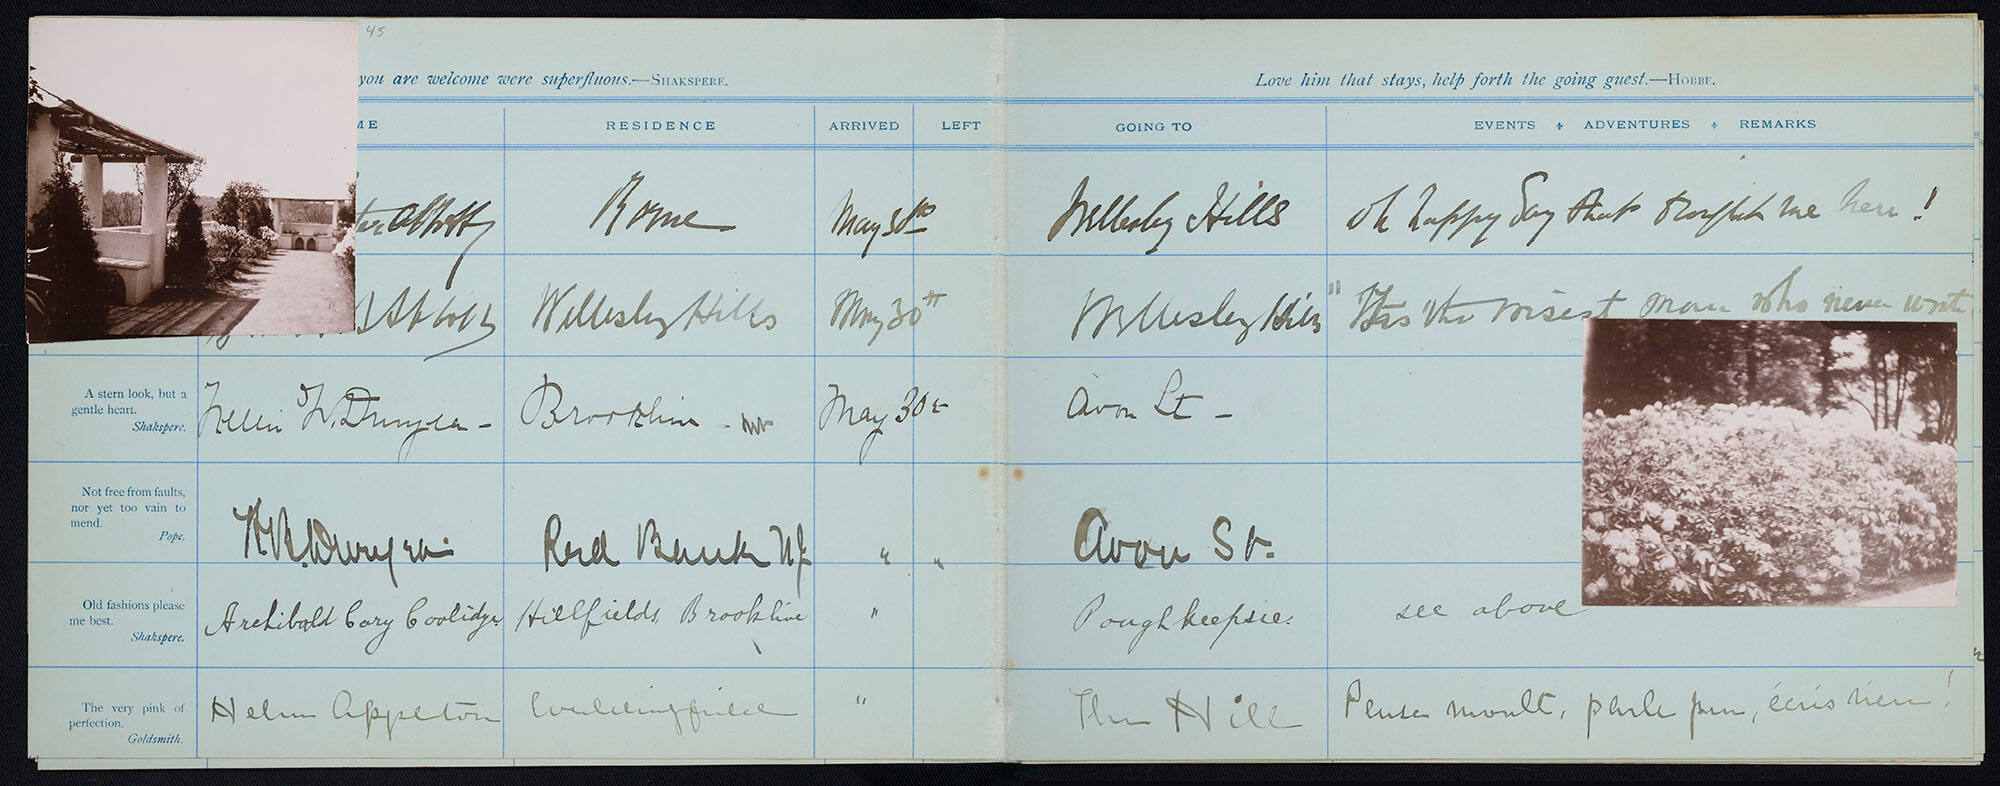 45
you are welcome were superfluous.—SHAKSPERE.
Love him that stays, help forth the going guest.—HOBBE.
ME RESIDENCE ARRIVED LEFT GOING TO EVENTS ADVENTURES REMARKS
Abbott Rome May 30th Wellesley Hills oh happy day that brought me here!
Abbott Wellesley Hills May 30th Wellesley Hills "He's the wisest man who never wrote
A stern look, but a
gentle heart.
Shakspere.
Brookline May 30 Avon St –
Not free from faults,
nor yet too vain to
mend.
Pope.
Red Bank NJ " " Avon St.
Old fashions please
me best.
Shakspere.
Archibald Cary Coolidge Hillfields, Brookline " Poughkeepsie. see above
The very pink of
perfection.
Goldsmith.
Helen Appleton " The Hill Pense moult, parle peu, écris rien!